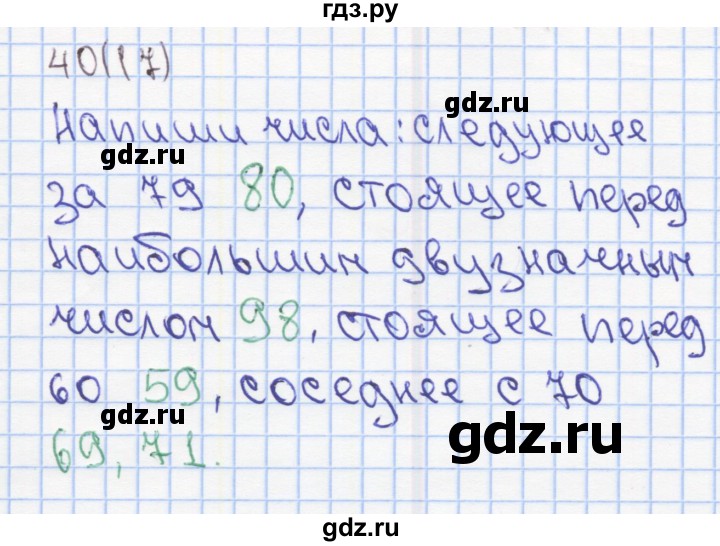 гдз.ру
40(17)
Напиши числа: следующее
gdz.ru
gdz.ru
за 79 80, стоящее перед
наибольшим двузначным
числом 98, стоящее перед
60 59, соседнее с 70
gdz.ru
gdz.ru
69, 71.
gdz.ru